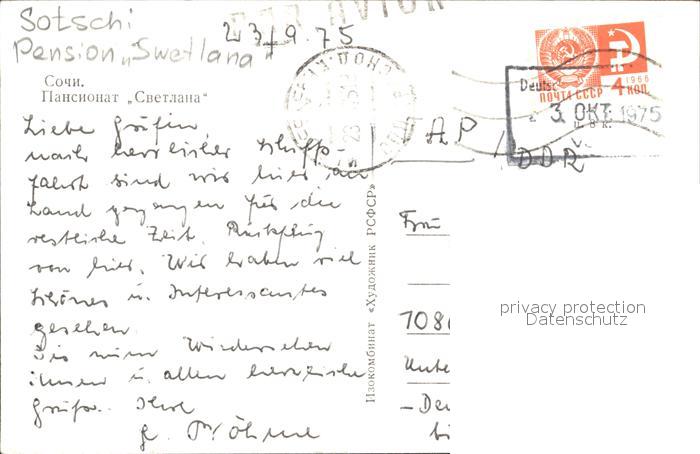 Sotschi
Pension „Swetlana"
PAR AVION
23/9.75
Сочи.
Пансионат „Светлана"
Liebe Gräfin,
nach herrlicher Schiff-
fahrt sind wir hier an
Land gegangen für die
restliche Zeit. Rückflug
von hier. Wir haben viel
Schönes u. Interessantes
gesehen.
Bis zum Wiedersehen
Ihnen u. allen herzliche
Grüße. Ihre
g. Möhme
Изокомбинат «Художник РСФСР»
1966
4 КОП.
ПОЧТА СССР
Deutsc
3. OKT. 1975
AP
DDR
Frau
108
Unte
– De
bi
privacy protection
Datenschutz